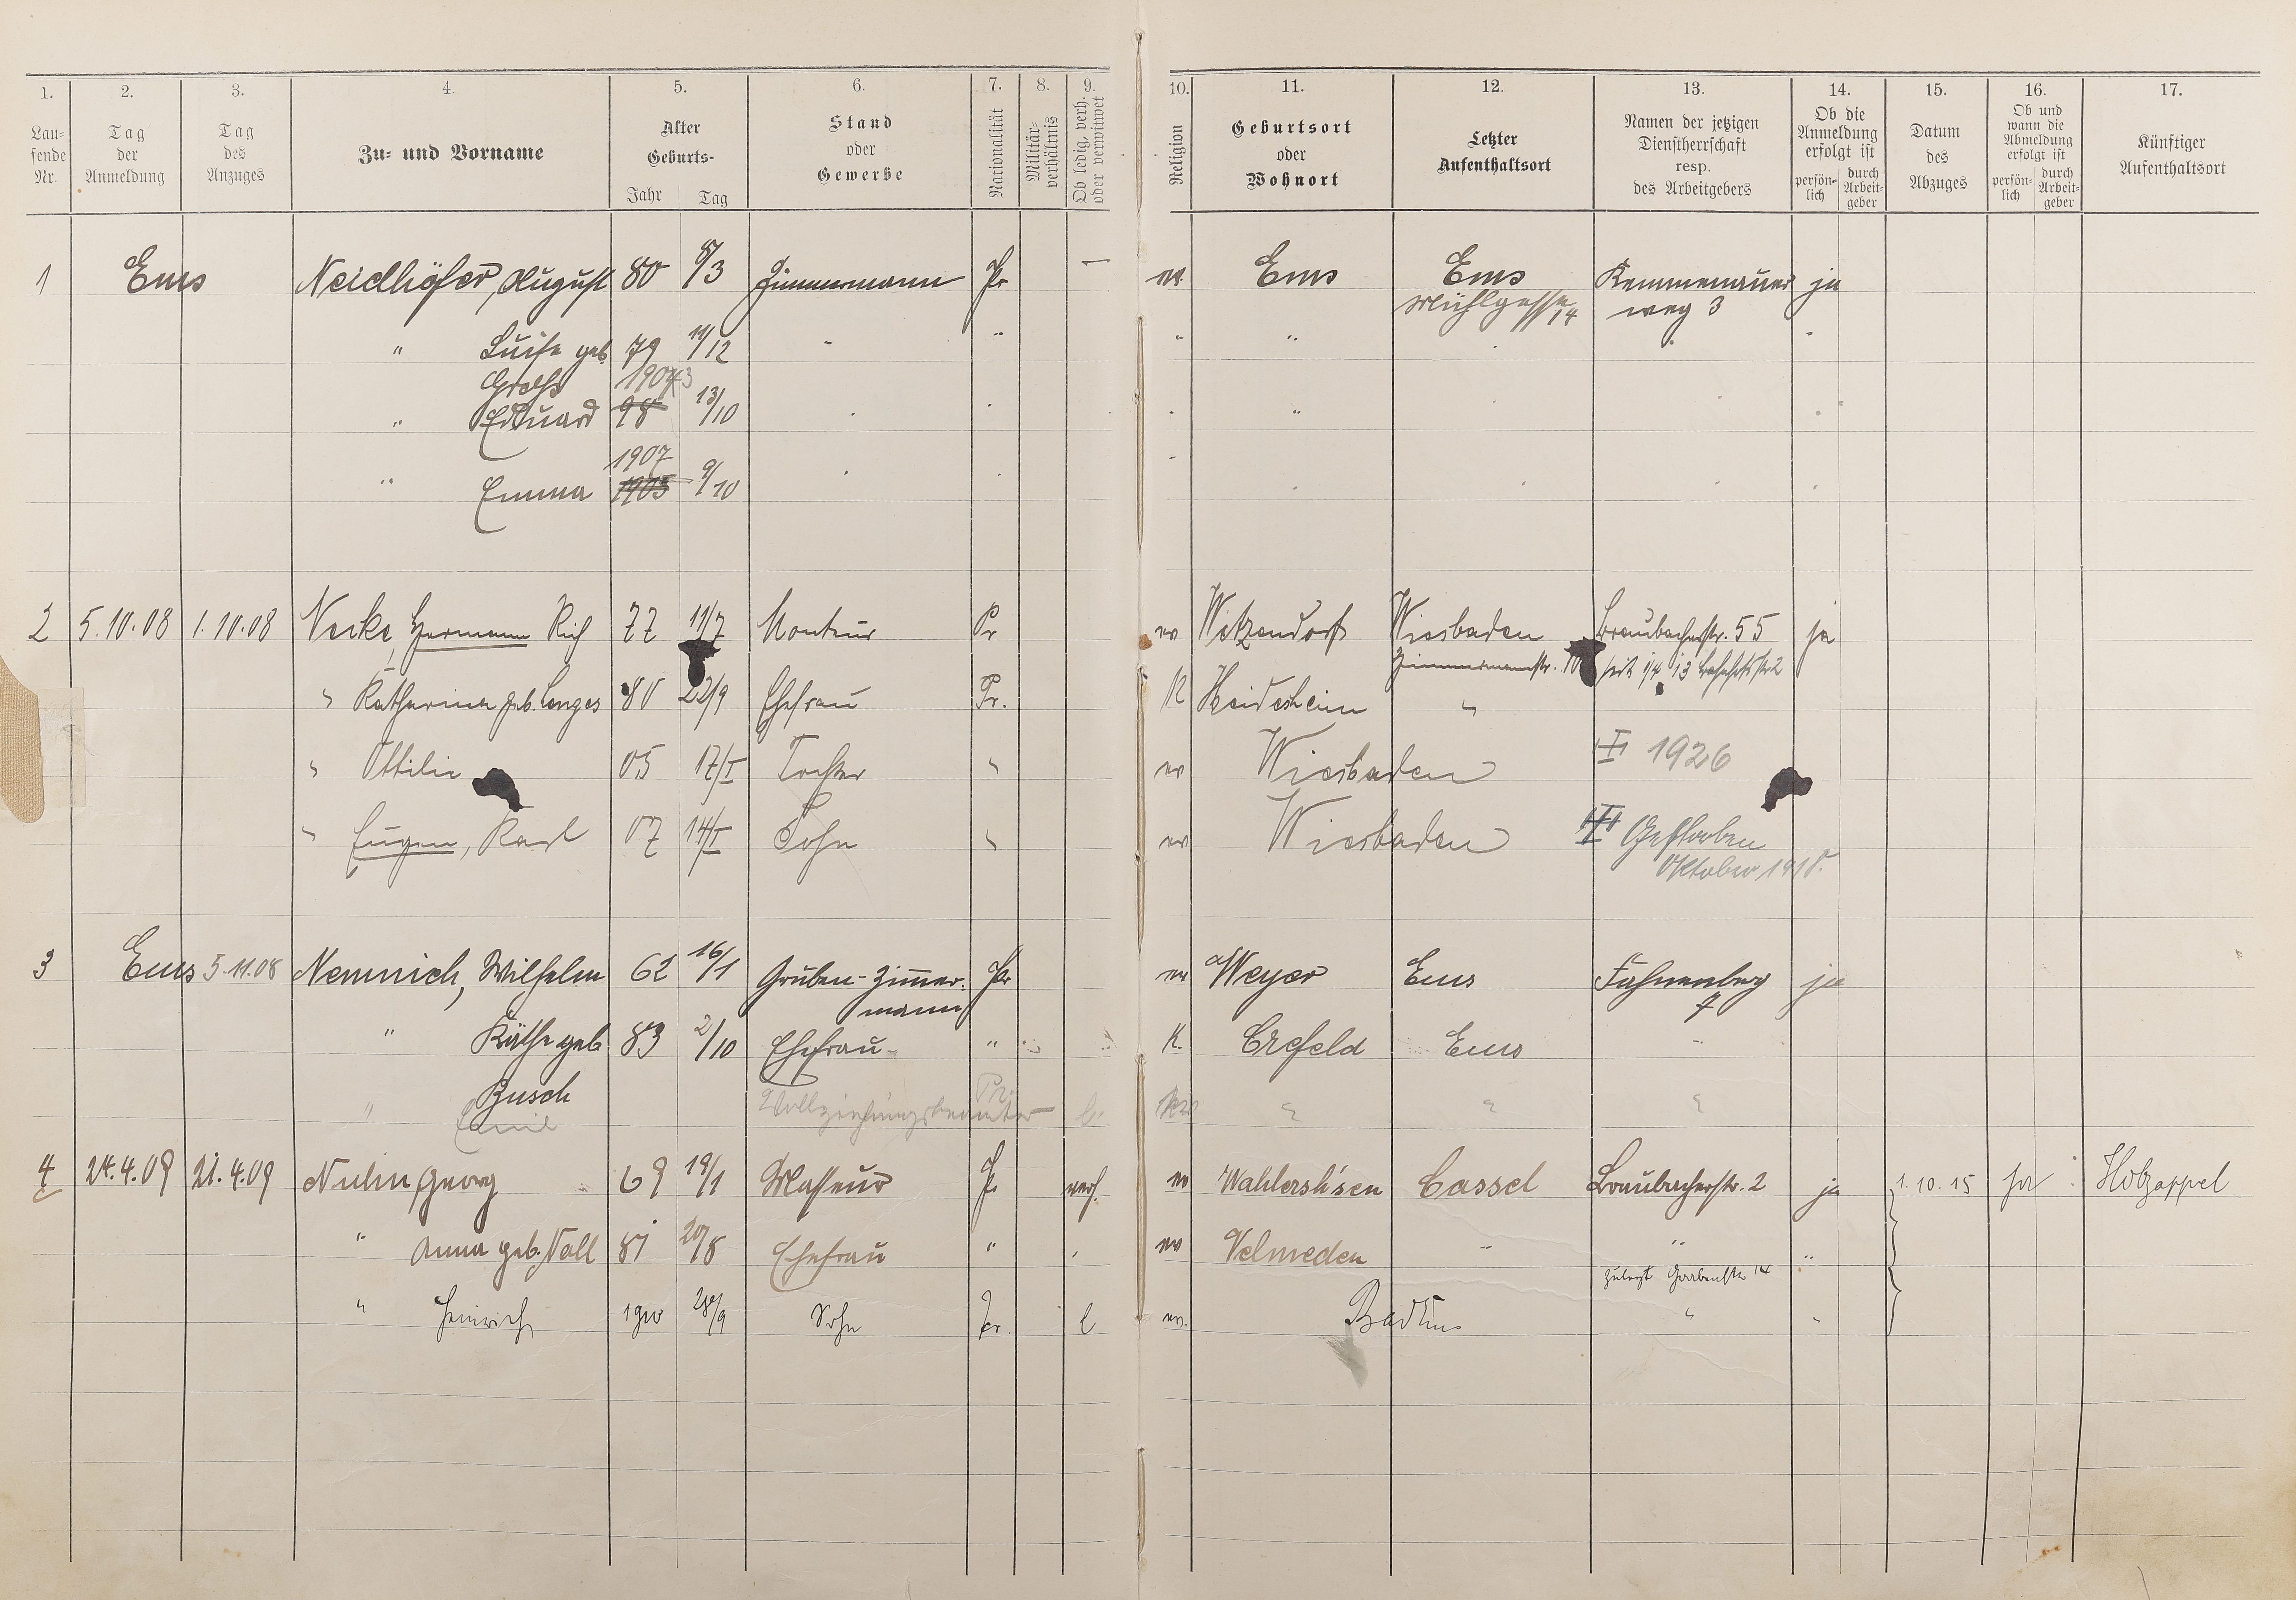 1. 2. 3. 4. 5. 6. 7. 8. 9. 10. 11. 12. 13. 14. 15. 16. 17.
Lau-fende Nr. Tag der Anmeldung Tag des Anzuges Zu- und Vorname Alter Geburts- Jahr Tag Stand oder Gewerbe Nationalität Militär-verhältnis Ob ledig, verh. oder verwitwet Religion Geburtsort oder Wohnort Letzter Aufenthaltsort Namen der jetzigen Dienstherrschaft resp. des Arbeitgebers Ob die Anmeldung erfolgt ist persön-lich durch Arbeit-geber Datum des Abzuges Ob und wann die Abmeldung erfolgt ist persön-lich durch Arbeit-geber Künftiger Aufenthaltsort
1 Ems Neidhöfer, August 80 8/3 Zimmermann Pr — ev. Ems Ems Kemmenauer ja
Mühlgasse 14 weg 3
" Luise geb. 79 11/12 " " " "
Groß 1904 3
" Eduard 98 13/10 "
1907
" Emma 1905 9/10
2 5.10.08 1.10.08 Neske, Hermann Rich 77 11/7 Monteur Pr ev Witzendorf Wiesbaden Braubacherstr. 55 ja
Zimmermannstr. 10 seit 1/4 13 Bahnhofstr 2
" Katharina geb. Lenges 80 22/9 Ehefrau Pr. K Heidesheim "
" Ottilie 05 17/I Tochter " ev Wiesbaden 1926
" Eugen, Karl 07 14/I Sohn " ev Wiesbaden Gestorben
Oktober 1918.
3 Ems 5.11.08 Nemnich, Wilhelm 62 16/1 Gruben-Zimmer- Pr ev Weyer Ems Fahnenberg ja
mann 7
" Käthe geb. 83 2/10 Ehefrau " K. Crefeld Ems "
Busch
" Emil Vollziehungsbeamter Pr. " " "
4 24.4.09 21.4.09 Nuhn, Georg 69 19/1 Masseur Pr verh. ev Wahlersh'sen Cassel Braubacherstr. 2 ja 1.10.15 ja Holzappel
" Anna geb. Noll 81 20/8 Ehefrau " " ev Velmeden " " "
zuletzt Grabenstr 14
" Heinrich 1910 28/9 Sohn Pr. l ev. Bad Ems " "